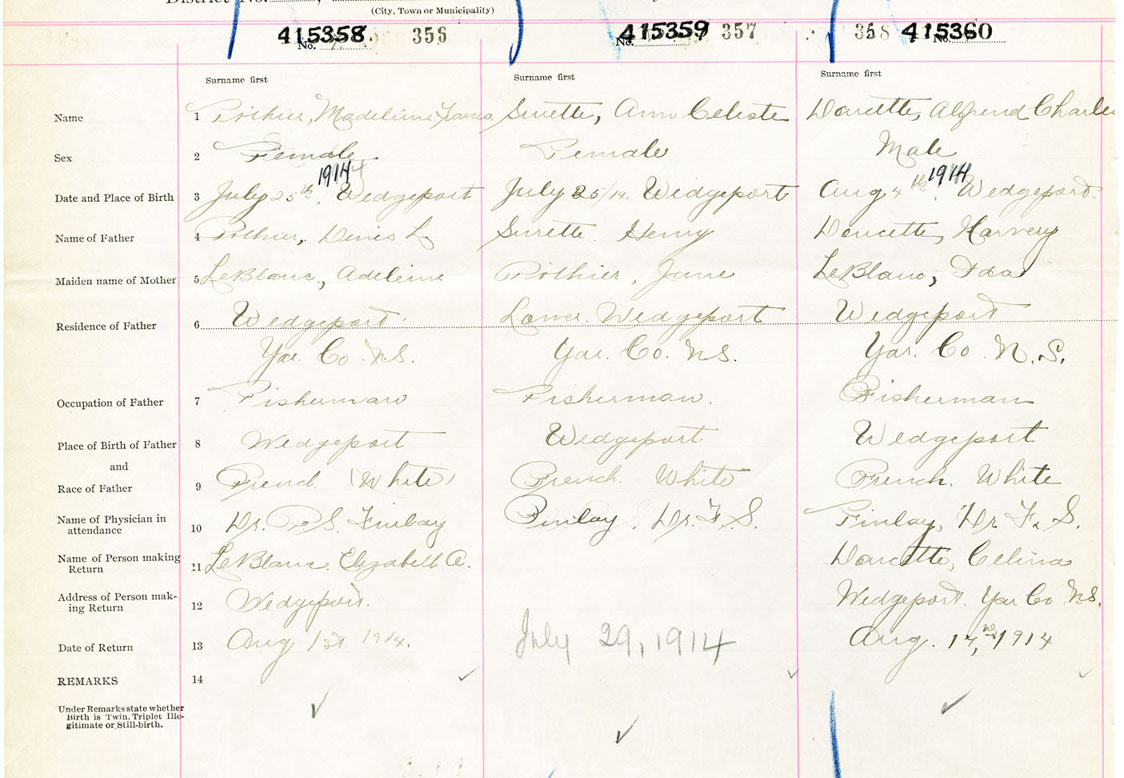 District No.
(City, Town or Municipality)
415358 No. 356
415359 No. 357
358 415360 No.
Surname first Surname first Surname first
Name 1 Pothier, Madeleine Surette, Ann Celeste Doucette, Alfred Charles
Sex 2 Female Female Male
1914 1914
Date and Place of Birth 3 July 25th, Wedgeport July 25/14. Wedgeport Aug 4th, Wedgeport.
Name of Father 4 Pothier, Denis L Surette. Henry Doucette, Harvery
Maiden name of Mother 5 LeBlanc, Adeline Pothier, Jane LeBlanc, Ida
Residence of Father 6 Wedgeport Lower Wedgeport Wedgeport
Yar. Co. N.S. Yar. Co. N.S. Yar. Co. N.S.
Occupation of Father 7 Fisherman Fisherman. Fisherman
Place of Birth of Father 8 Wedgeport Wedgeport Wedgeport
and
Race of Father 9 French (White) French. White French. White
Name of Physician in attendance 10 Dr. F. S. Finlay Finlay, Dr. F. S. Finlay, Dr. F. S.
Name of Person making Return 11 LeBlanc. Elizabeth A. Doucette, Celina
Address of Person making Return 12 Wedgeport. Wedgeport. Yar Co N.S.
Date of Return 13 Aug 1st 1914. July 29, 1914 Aug. 17, 1914
REMARKS 14
Under Remarks state whether
Birth is Twin, Triplet Ille-
gitimate or Still-birth.